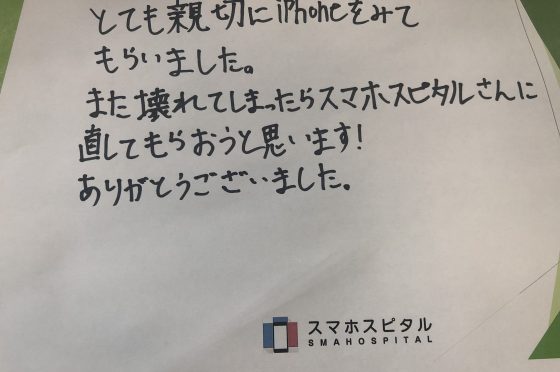 とても親切にiPhoneをみて
もらいました。
また壊れてしまったらスマホスピタルさんに
直してもらおうと思います!
ありがとうございました。
スマホスピタル
SMAHOSPITAL